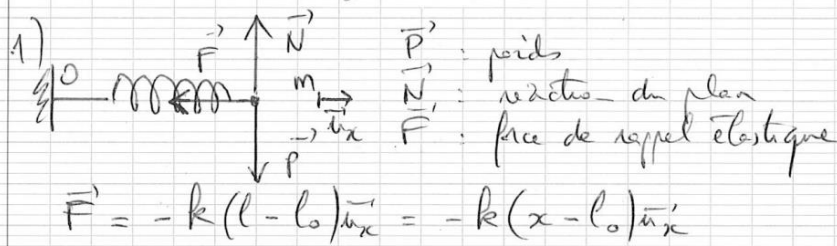 1)
O F⃗ N⃗ m u⃗ₓ P⃗
P⃗ : poids
N⃗ : réaction du plan
F⃗ : force de rappel élastique
F⃗ = -k(l-l₀)u⃗ₓ = -k(x-l₀)u⃗ₓ